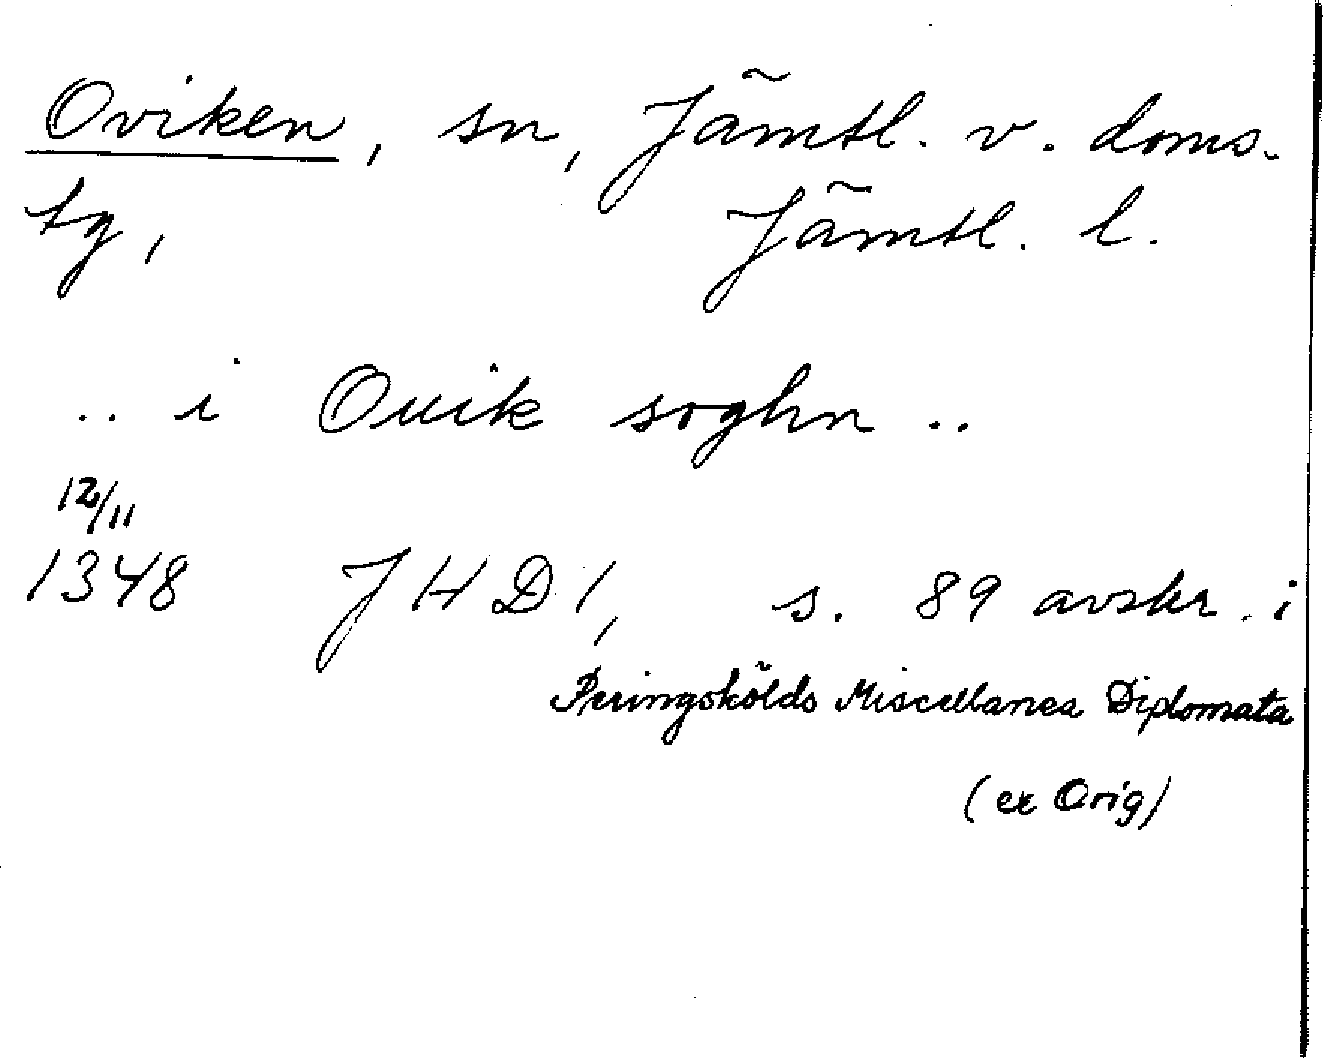 Oviken, sn, Jämtl. v. doms.
tg, Jämtl. l.
.. i Ouik soghn ..
12/11
1348 JHD 1, s. 89 avskr. i
Peringskölds Miscellanea Diplomata
(ex Orig)